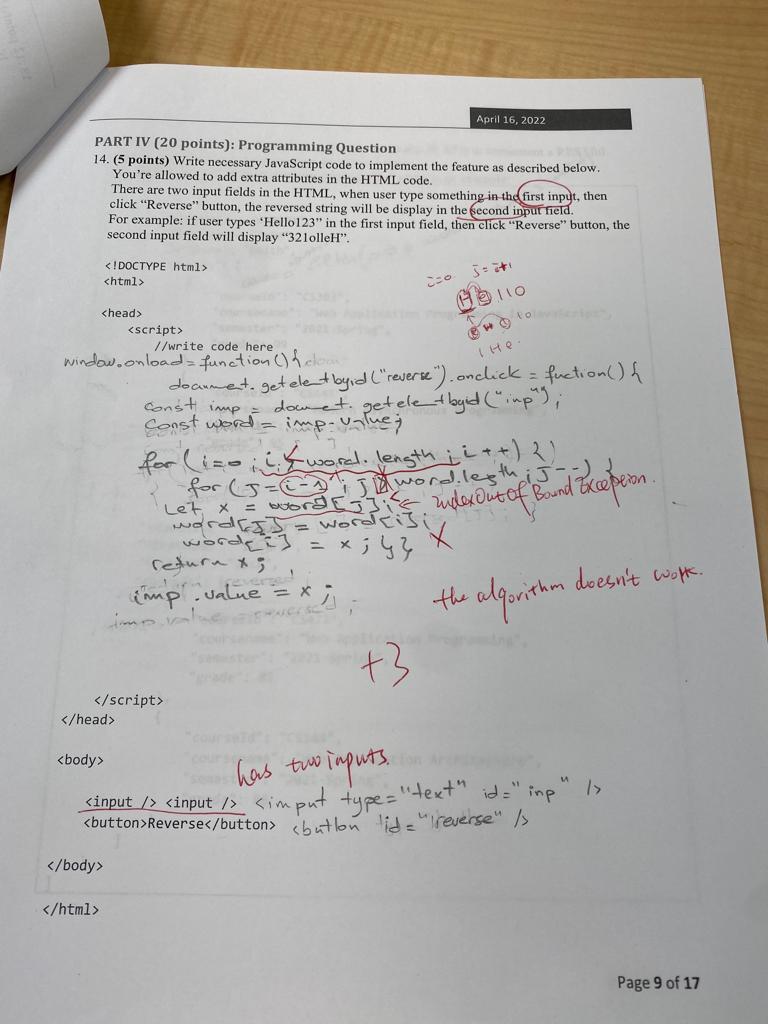 April 16, 2022
PART IV (20 points): Programming Question
14. (5 points) Write necessary JavaScript code to implement the feature as described below.
You're allowed to add extra attributes in the HTML code.
There are two input fields in the HTML, when user type something in the first input, then
click "Reverse" button, the reversed string will be display in the second input field.
For example: if user types 'Hello123" in the first input field, then click "Reverse" button, the
second input field will display "321olleH".
<!DOCTYPE html>
<html>
i=0 j=i+1
He110
<head>
<script>
//write code here
window.onload = function() {
document.getelentbyid("reverse").onclick = fuction() {
const imp = documet.getelentbyid("inp");
const word = imp.value;
for (i=0; i < word.length; i++) {
for (J=i-1; j word.legth; J--) {
Let x = word[J]; ← indexOutOf Bound Exception.
word[J] = word[i];
word[i] = x; }} X
return x;
imp.value = x;
the algorithm doesn't work.
+3
</script>
</head>
<body>
has two inputs.
<input /> <input /> <imput type="text" id="inp" />
<button>Reverse</button> <button id="reverse" />
</body>
</html>
Page 9 of 17